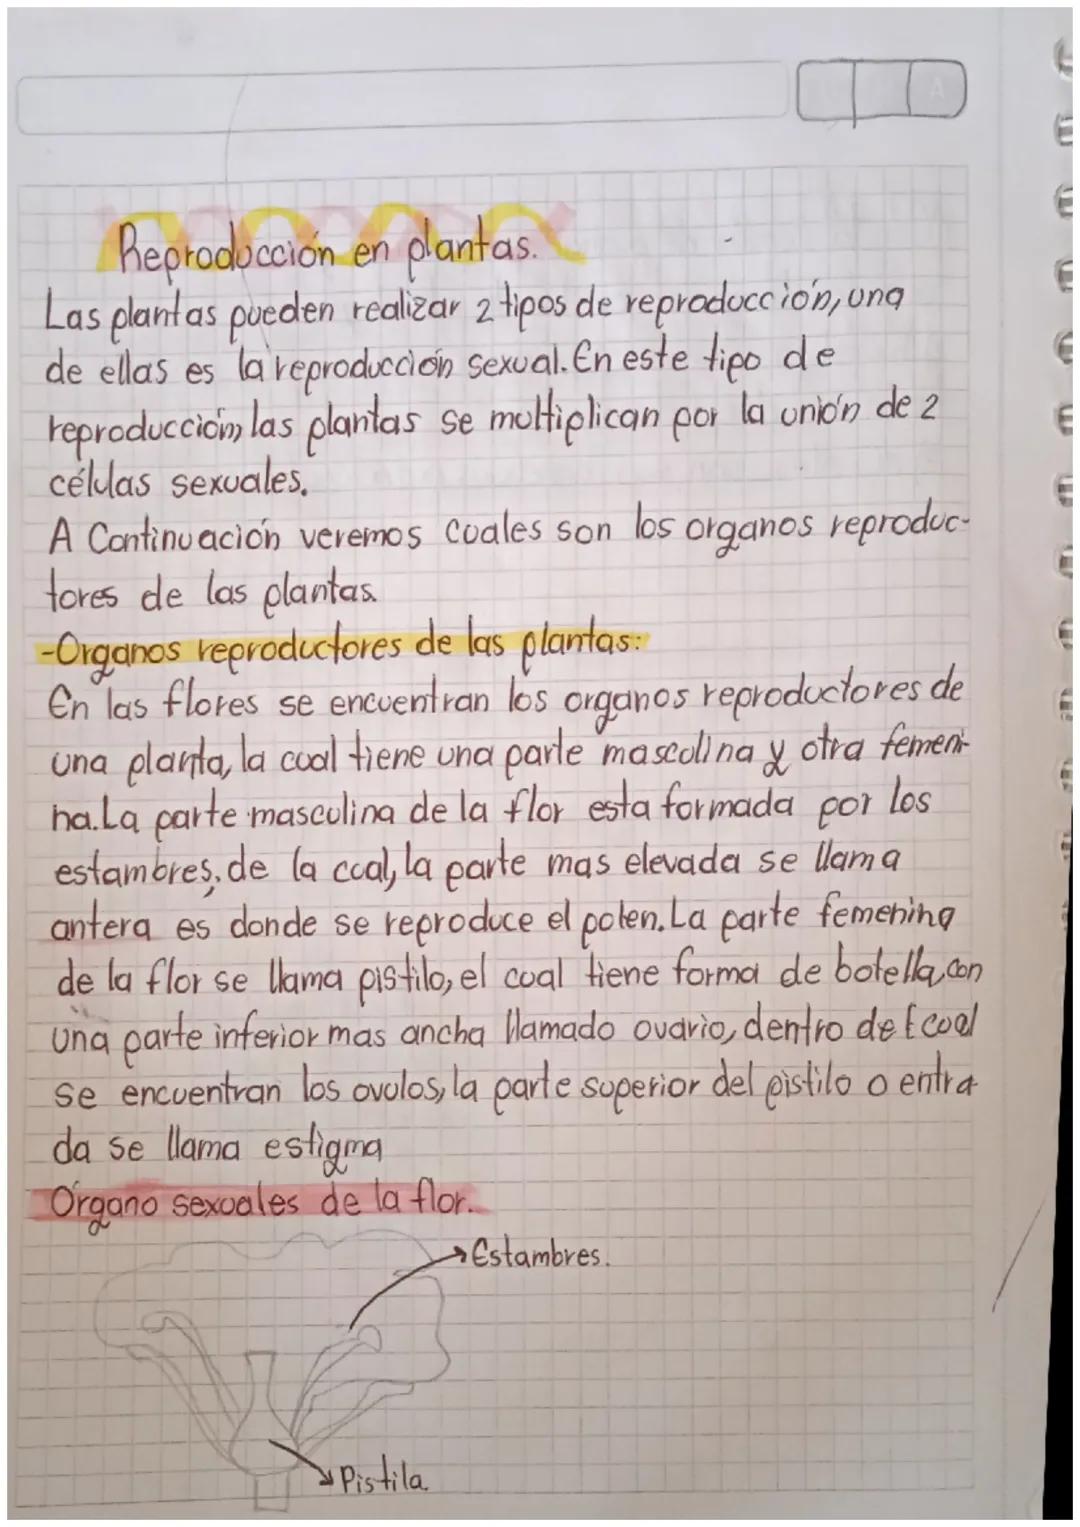 Reproducción en plantas.
Las plantas pueden realizar 2 tipos de reproducción, una
de ellas es la reproducción sexual. En este tipo de
reproducción, las plantas se multiplican por la unión de 2
células sexuales.
A Continuación veremos cuales son los organos reproduc-
tores de las plantas.
-Organos reproductores de las plantas:
En las flores se encuentran los organos reproductores de
una planta, la cual tiene una parte masculina y otra femeni-
na. La parte masculina de la flor esta formada por los
estambres, de la cual, la parte mas elevada se llama
antera es donde se reproduce el polen. La parte femenina
de la flor se llama pistilo, el cual tiene forma de botella, con
una parte inferior mas ancha llamado ovario, dentro del cual
se encuentran los ovulos, la parte superior del pistilo o entra-
da se llama estigma
Órgano sexuales de la flor.
Estambres.
Pistila